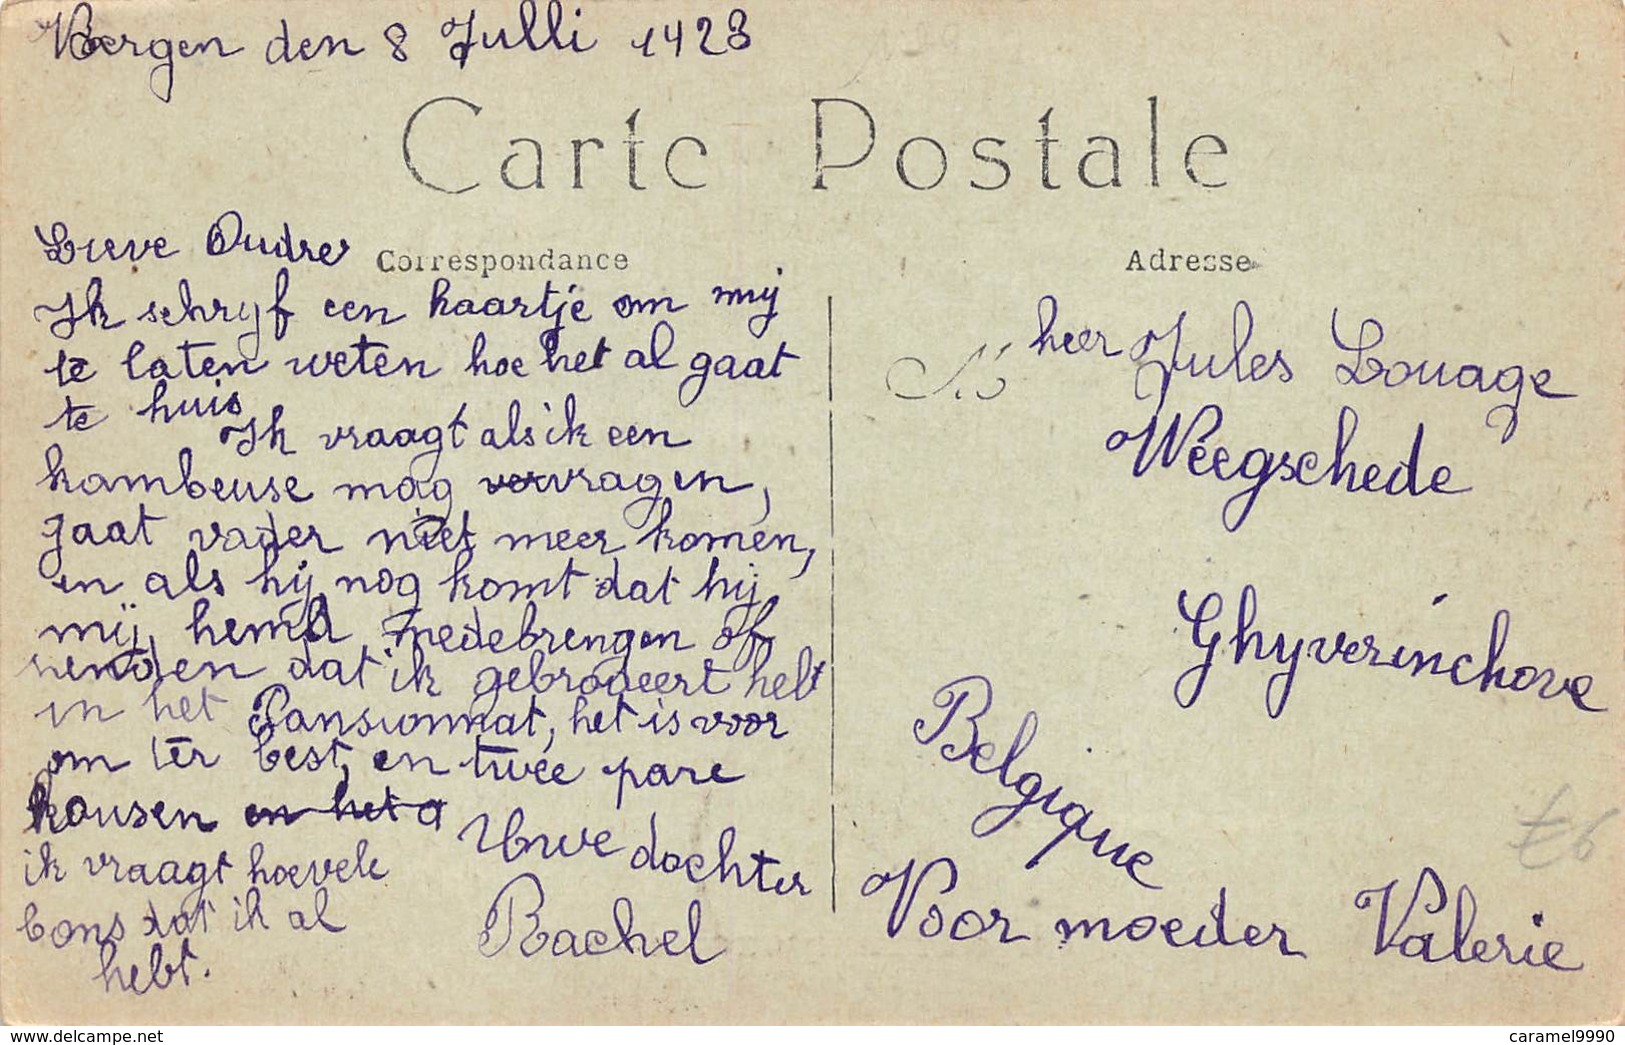 Bergen den 8 Julli 1928
Carte Postale
Correspondance
Adresse
Lieve Oudre
Ik schryf een kaartje om mij
te laten weten hoe het al gaat
te huis
Ik vraagt als ik een
kambeuse mag vragen,
gaat vader niet meer komen,
en als hij nog komt dat hij
mij hemd medebrengen of
senden dat ik gebrodeert hebt
in het Pansionnat, het is voor
om ter best, en twee pare
kousen en het a
ik vraagt hoevele
bons dat ik al
hebt.
Uwe dochter
Rachel
M
heer Jules Louage
Weegschede
Ghyverinchove
Belgique
Voor moeder Valerie
£6
www.delcampe.net
caramel9990